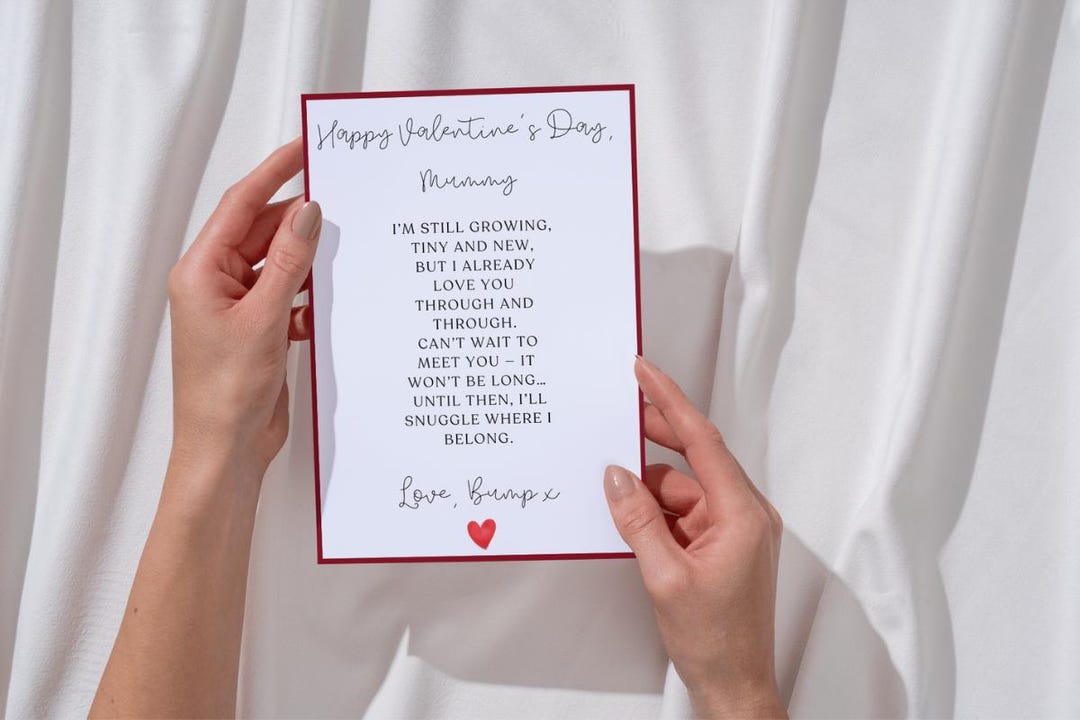 Happy Valentine's Day,
Mummy
I'M STILL GROWING,
TINY AND NEW,
BUT I ALREADY
LOVE YOU
THROUGH AND
THROUGH.
CAN'T WAIT TO
MEET YOU – IT
WON'T BE LONG...
UNTIL THEN, I'LL
SNUGGLE WHERE I
BELONG.
Love, Bump x